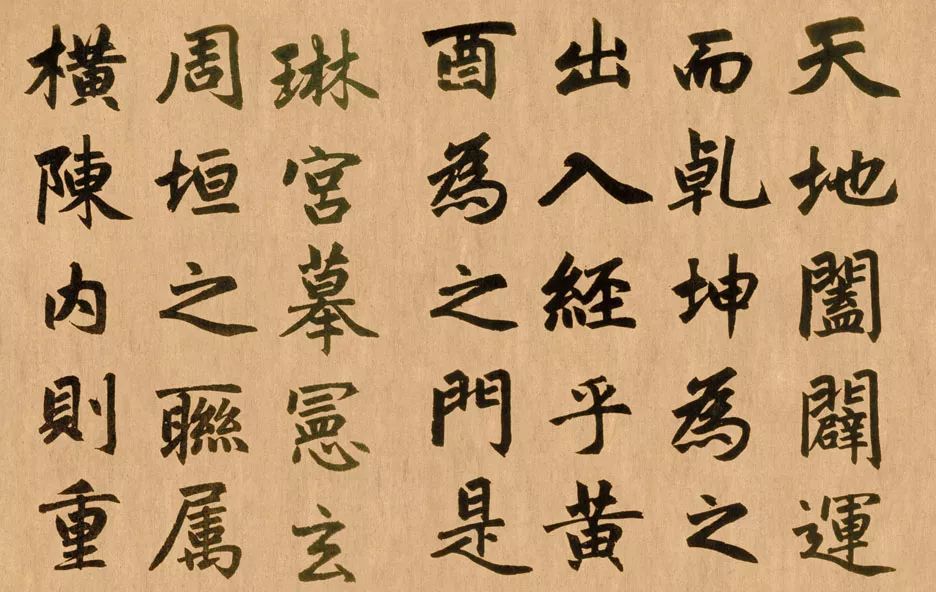 天地闔闢運
而乾坤為之
出入經乎黃
酉為之門是
琳宮摹憲玄
周垣之聯属
橫陳内則重